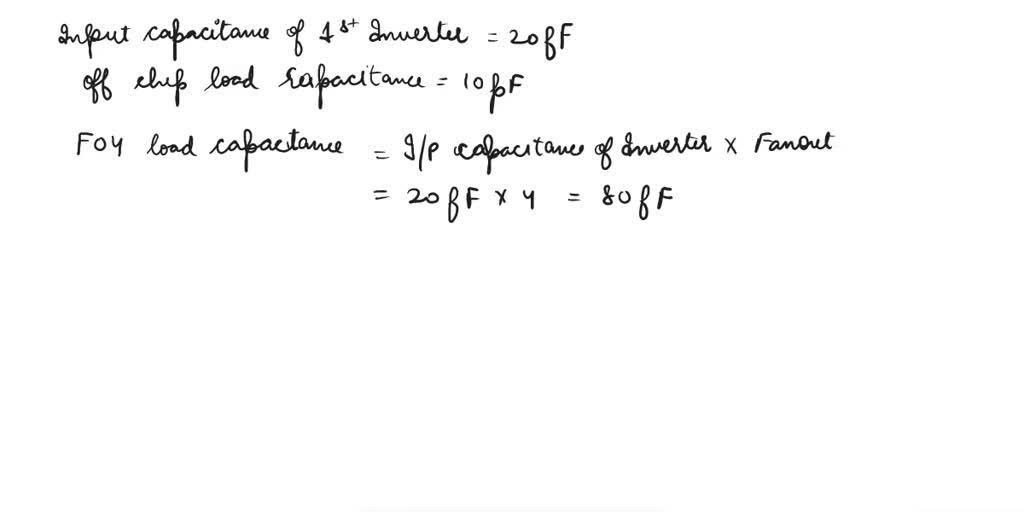 Input capacitance of 1st Inverter = 20fF
off chip load capacitance = 10pF
FO4 load capactance = I/P capacitance of Inverter × Fanout
= 20fF × 4 = 80fF